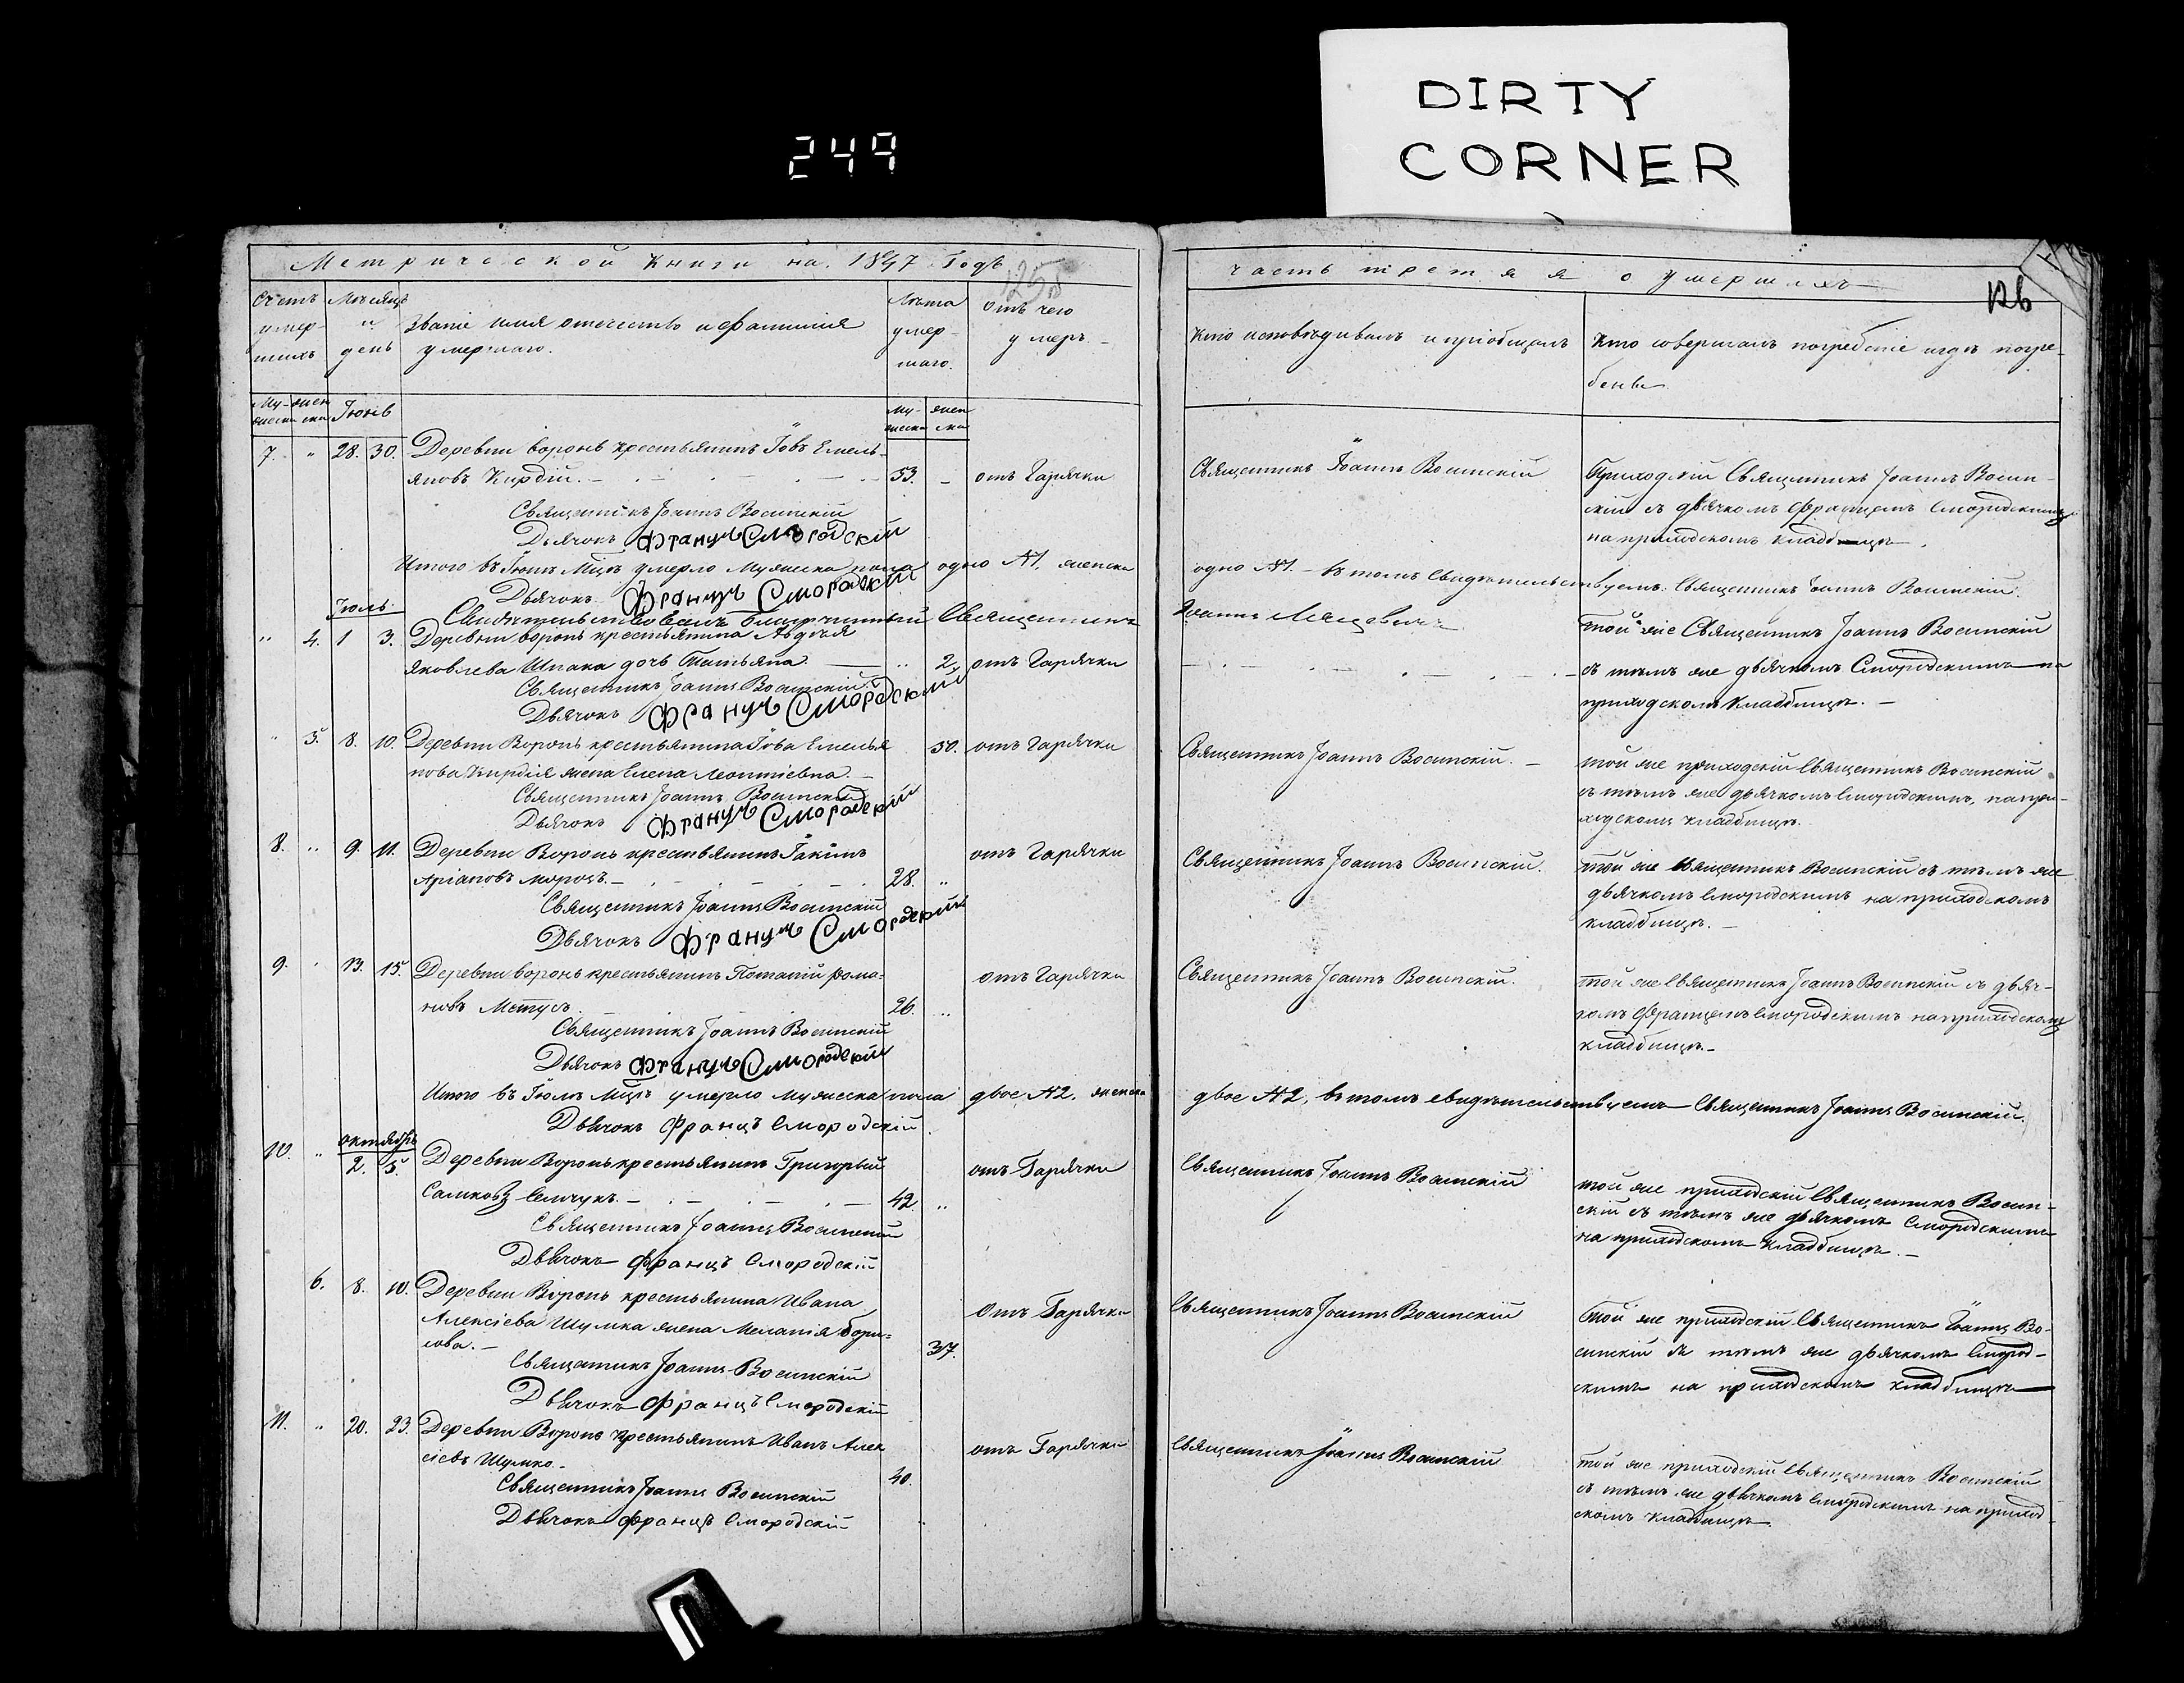 249
DIRTY
CORNER
Метрической книги на 1847 Годъ
125
часть третяя о умершихъ
126
Счетъ умер- шихъ
Мѣсяцъ и день
Званіе имя отечество и фамилія умершаго.
Лѣта умер- шаго.
отъ чего умеръ.
Кто исповѣдывалъ и пріобщалъ
Кто совершалъ погребеніе и гдѣ погре-
бены
Му- жеска
жен ска
Іюнь
Му- жеска
жен ска
7. " 28. 30. Деревни воронь крестьянинъ Іовъ Емель-
яновъ Кирдій. 53. - отъ Гарячки
Священникъ Іоаннъ Восинскій
Дьячокъ Францъ Смородскій
Священникъ Іоаннъ Восинскій
Приходскій Священникъ Іоаннъ Восин-
скій съ дьячкомъ Францемъ Смородскимъ
на приходскомъ кладбищѣ.
Итого въ Іюнѣ Мцѣ умерло Мужеска пола одно №1, женска одно №1. - въ томъ свидѣтельствуемъ. Священникъ Іоаннъ Восинскій.
Дьячокъ Францъ Смородскій
Свидѣтельствовалъ благочинный Священникъ Іоаннъ
Іюль
" 4. 1 3. Деревни воронь крестьянина Авдѣя
Яковлева Шпака дочь Татьяна. " 2, отъ Гарячки
Священникъ Іоаннъ Восинскій
Дьячокъ Францъ Смородскій
той же Священникъ Іоаннъ Восинскій
съ тѣмъ же дьячкомъ Смородскимъ на
приходскомъ кладбищѣ. -
" 5. 8. 10. Деревни Воронь крестьянина Іова Емелья 50. отъ гарячки
нова Кирдія жена Елена Леонтіевна. -
Священникъ Іоаннъ Восинскій
Дьячокъ Францъ Смородскій
Священникъ Іоаннъ Восинскій. -
той же приходскій Священникъ Восинскій
съ тѣмъ же дьячкомъ Смородскимъ, на при-
ходскомъ кладбищѣ.
8. " 9. 11. Деревни Воронь крестьянинъ Іакимъ отъ Гарячки
Аріановъ морозъ. - 28. "
Священникъ Іоаннъ Восинскій
Дьячокъ Францъ Смородскій
Священникъ Іоаннъ Восинскій.
той же Священникъ Восинскій съ тѣмъ же
дьячкомъ Смородскимъ на приходскомъ
кладбищѣ. -
9. " 13. 15. Деревни воронь крестьянинъ Потапій рома- отъ Гарячки
новъ 26. "
Священникъ Іоаннъ Восинскій
Дьячокъ Францъ Смородскій
Священникъ Іоаннъ Восинскій.
той же Священникъ Іоаннъ Восинскій съ дьяч-
комъ Францемъ Смородскимъ на приходскомъ
кладбищѣ. -
Итого въ Іюлѣ Мцѣ умерло мужеска пола двое №2, женска двое №2, въ томъ свидѣтельствуемъ Священникъ Іоаннъ Восинскій.
Дьячокъ Францъ Смородскій
октябрь
10. " 2. 5. Деревни Воронь крестьянинъ Григорый отъ Гарячки
42. "
Священникъ Іоаннъ Восинскій
Дьячокъ Францъ Смородскій
Священникъ Іоаннъ Восинскій
той же приходскій Священникъ Восин-
скій съ тѣмъ же дьячкомъ Смородскимъ
на приходскомъ кладбищѣ. -
6. 8. 10. Деревни Воронь крестьянина Ивана отъ Гарячки
Алексіева Шумка жена Меланія бори-
сова. - 37.
Священникъ Іоаннъ Восинскій
Дьячокъ Францъ Смородскій
Священникъ Іоаннъ Восинскій
Той же приходскій Священникъ Іоаннъ Во-
синскій съ тѣмъ же дьячкомъ Смород-
скимъ на приходскомъ кладбищѣ
11. " 20. 23. Деревни Воронь крестьянинъ Иванъ Алек отъ Гарячки
сіевъ Шумко. 40.
Священникъ Іоаннъ Восинскій
Дьячокъ Францъ Смородскій
Священникъ Іоаннъ Восинскій
той же приходскій Священникъ Восинскій
съ тѣмъ же дьячкомъ Смородскимъ на приход-
скомъ кладбищѣ.